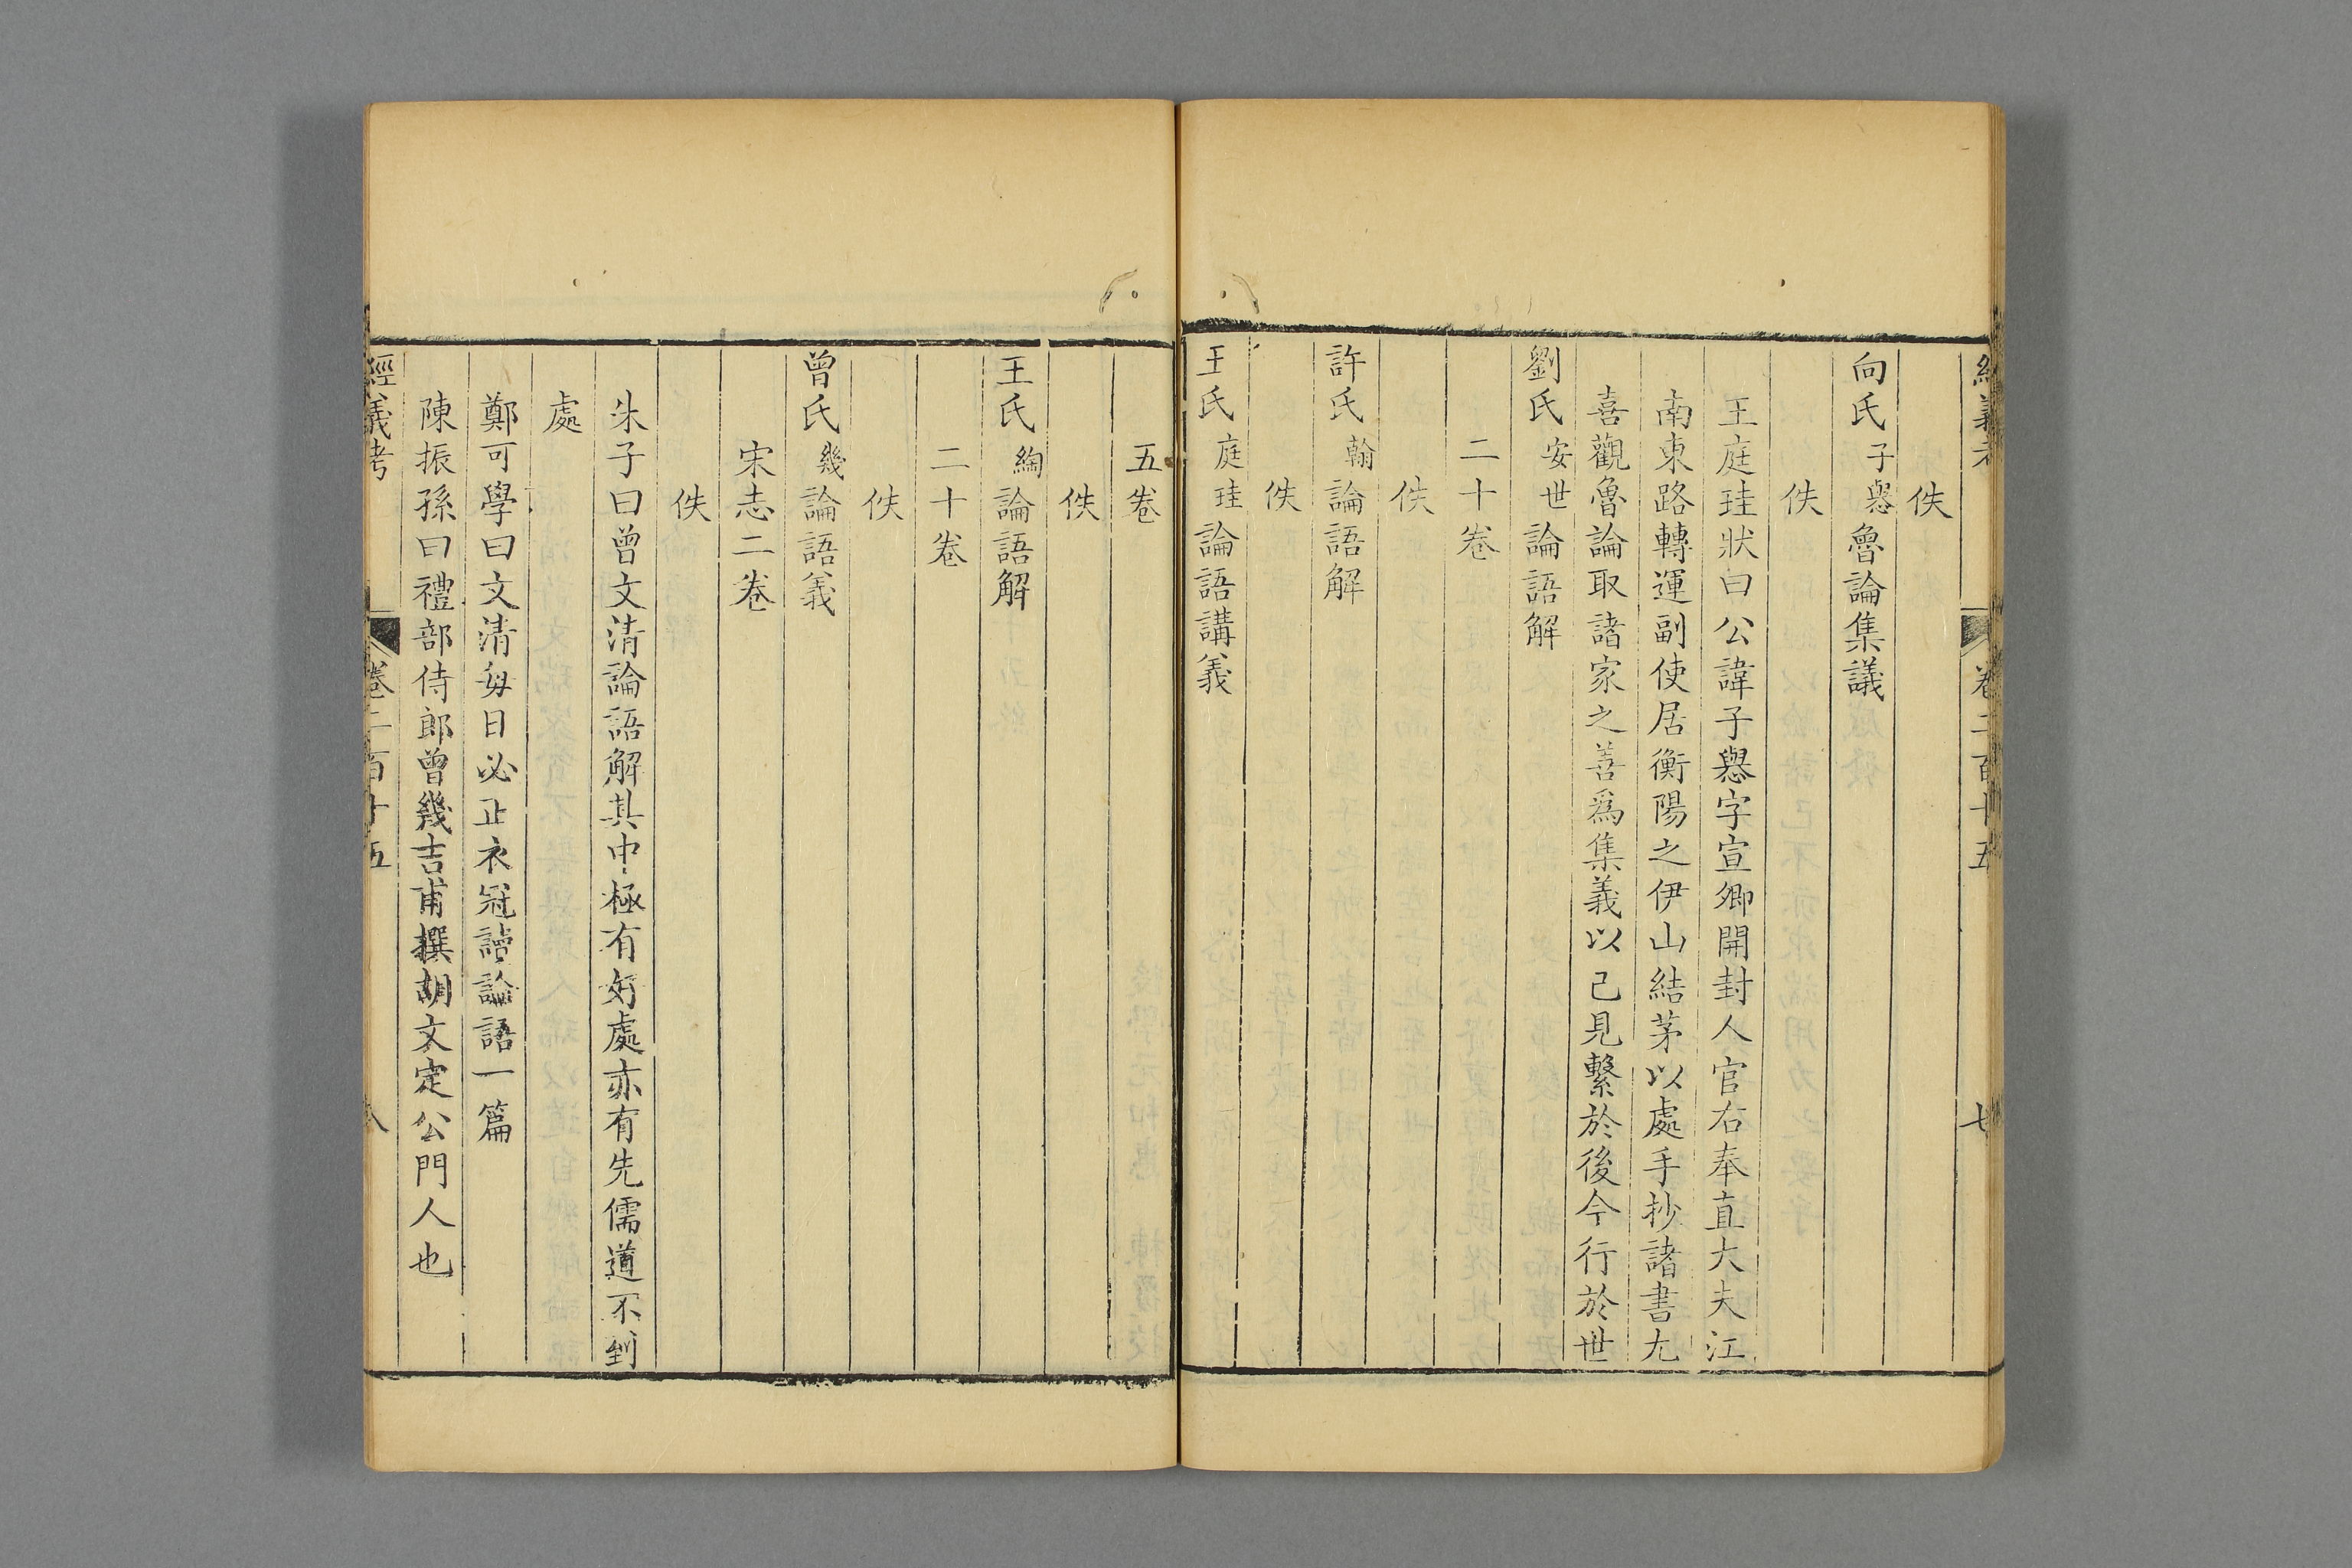 經義考 卷二百十五 七
佚
向氏子㦛魯論集議
佚
王庭珪狀曰公諱子㦛字宣卿開封人官右奉直大夫江
南東路轉運副使居衡陽之伊山結茅以處手抄諸書尢
喜觀魯論取諸家之善爲集義以己見繫於後今行於世
劉氏安世論語解
二十卷
佚
許氏翰論語解
佚
王氏庭珪論語講義
五卷
佚
王氏綯論語解
二十卷
佚
曾氏幾論語義
宋志二卷
佚
朱子曰曾文清論語解其中極有好處亦有先儒道不到
處
鄭可學曰文清每日必正衣冠讀論語一篇
陳振孫曰禮部侍郎曾幾吉甫撰胡文定公門人也
經義考 卷二百十五 八